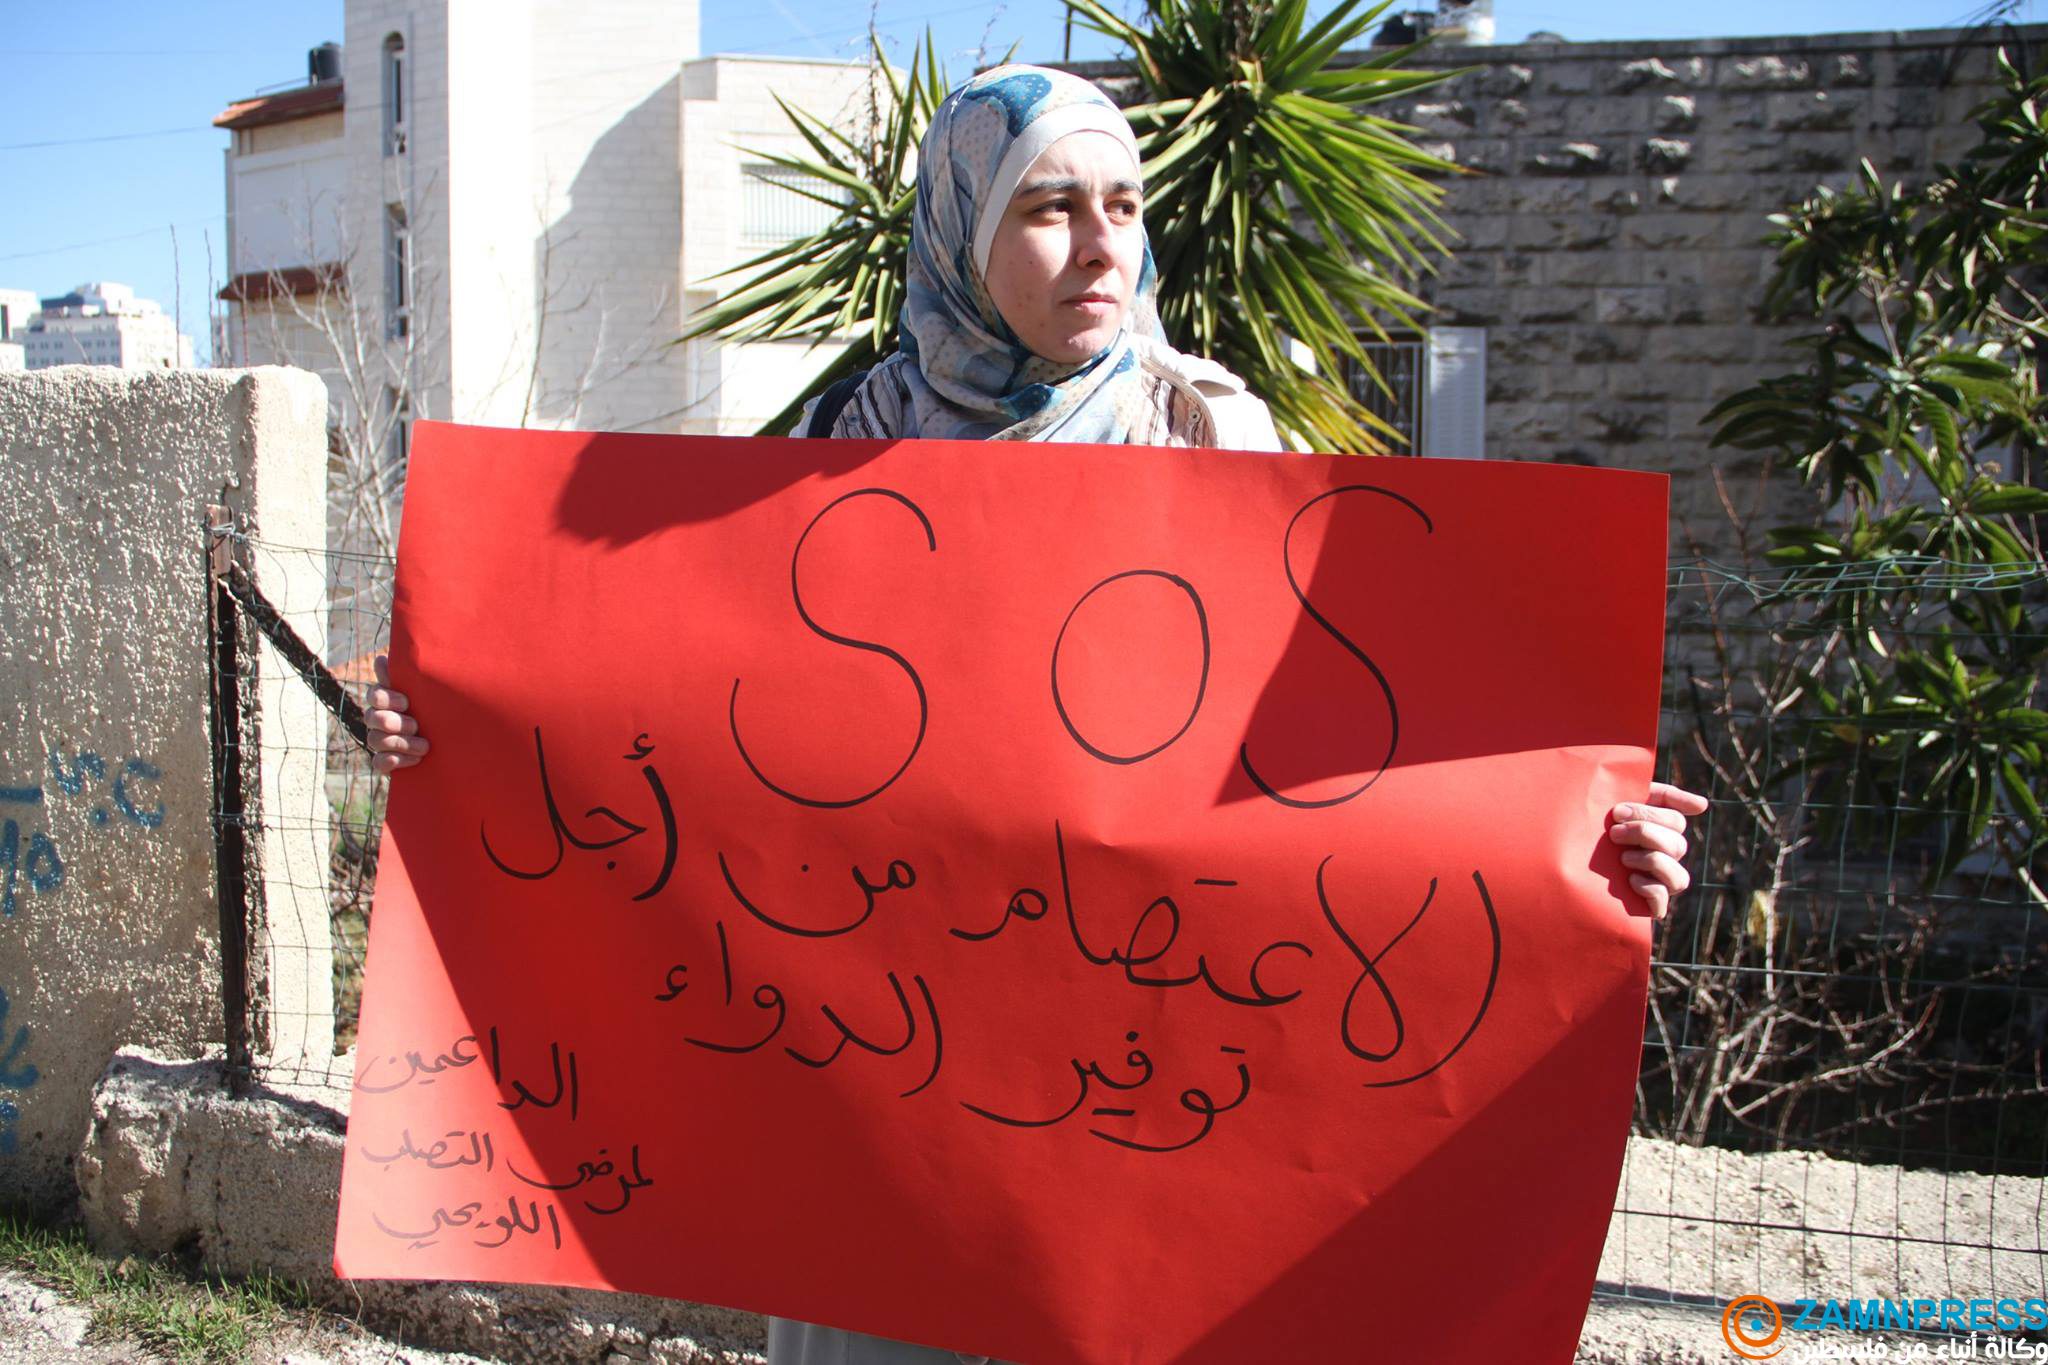 SOS
الاعتصام من أجل
توفير الدواء
الداعمين
لمرضى التصلب
اللويحي
ZAMNPRESS
وكالة أنباء من فلسطين